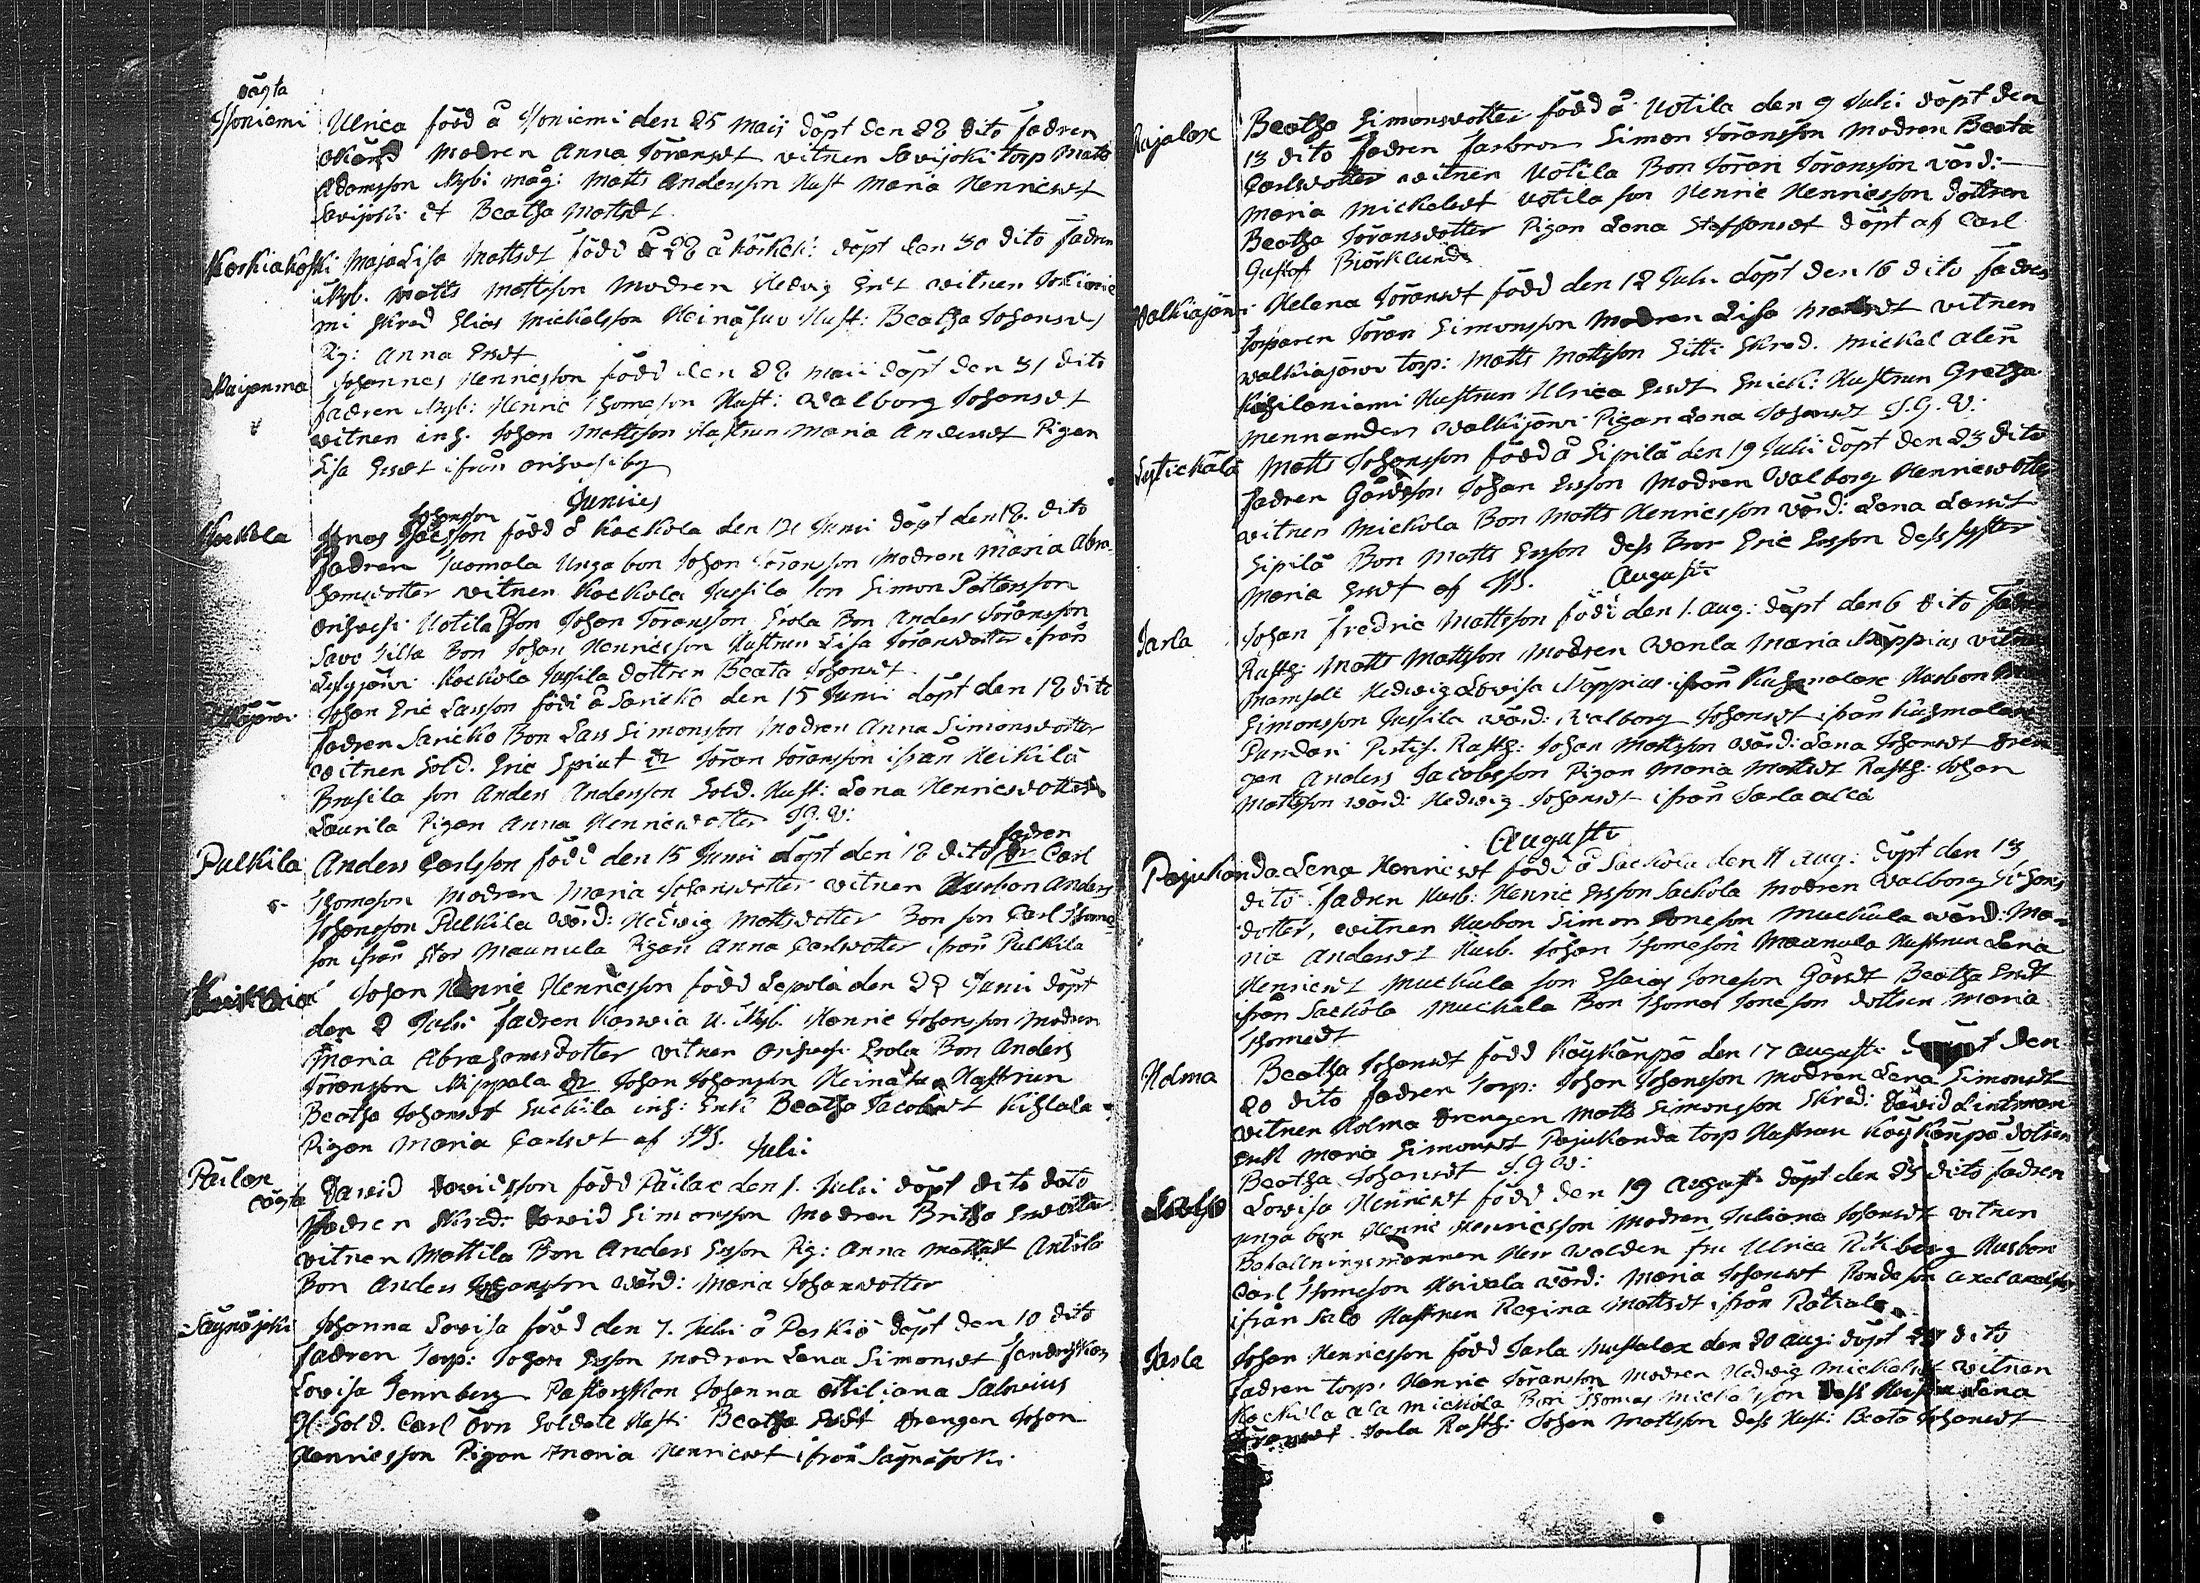 oägta
Isoniemi Ulrica född å Isoniemi den 25 Maij döpt den 28 dito fadren
okänd Modren Anna Göransdt vitnen Savijoki torp Matts
Adamsson Nybi måg: Matts Andersson Hust Maria Henricsdt
Savijoki dt Beatha Mattsdt
Koskiakoski MajaLisa Mattsdt född 28 å döpt den 30 dito fadren
Nyb. Matts Mattsson Modren Hedvig Ersdt vitnen
mi skred Elias Mickelsson Heinäsuo Hust: Beatha Johansdt
Pig: Anna Ersdt
Johannes Henricsson född den 28 Maii döpt den 31 dito
fadren Nyb: Henric Thomeson Hust: Walborg Johansdt
vitnen inh. Johan Mattsson Hustrun Maria Andersdt Pigan
Lisa Ersdt ifrån Orihvesiby
Junius
Johansson
Kockola Jonas född å Kockola den 12 Junii döpt den 18. dito
fadren Tuomola Unga bon Johan Göransson Modren Maria Abra-
hamsdotter vitnen Kockola Jussila son Simon Pettersson
Orihvesi Uotila Johan Göransson Erola Bon Anders Göransson
Bon Johan Henricsson Hustrun Lisa Göransdotter ifrån
Kockola Jussila dottren Beata Johansdt
Johan Eric Larsson född å Saricko den 15 Junii döpt den 18 dito
fadren Saricko Bon Lars Simonsson Modren Anna Simonsdotter
vitnen Sold. Eric Spiut Göran Göransson ifrån Heikilä
Brusila son Anders Andersson Sold. Hust: Lena Henricsdotter
Laurila Pigan Anna Henricsdotter
fadren
Pulkila Anders Carlsson född den 15 Junii döpt den 18 dito Carl
Thomeson Modren Maria Johansdotter vitnen Husbon Anders
Johansson Pulkila värd: Hedwig Mattsdotter Bon son Carl Thome-
son ifrån Stor Maunula Pigan Anna Carlsdotter ifrån Pulkila
Johan Henric Henricsson född Lepolä den 28 Junii döpt
den 2 Julii fadren Karvia U. Nyb. Henric Johansson Modren
Maria Abrahamsdotter vitnen Orihvesi Erola Bon Anders
Göransson Nippala Johan Johansson Heinäsuo Hustrun
Beatha Johansdt Suckila inh: Enk: Beatha Jacobsdt
Pigan Maria Carlsdt af
Julii
Päilax
oägta David Davidsson född Päilax den 1. Julii döpt dito dato
fadren Skred: David Simonsson Modren Britha Ersdotter
vitnen Mattila Bon Anders Ersson Pig: Anna Mattsdt Antola
Bon Anders Johansson värd: Maria Johansdotter
Säynäjoki Johanna Lovisa född den 7. Julii å Perkiö döpt den 10 dito
fadren Torp: Johan Ersson Modren Lena Simonsdt
Lovisa Tennberg Pastorskan Johanna Ottiliana Salovius
Sold. Carl Örn Soldate Hust: Beatha Ersdt Drengen Johan
Henricsson Pigan Maria Henricsdt ifrån Säynäjoki.
Rajalax Beatha Simonsdotter född å Uotila den 9 Julii döpt den
13 dito fadren farbror Simon Göransson Modren Beata
Carlsdotter vitnen Uotila Bon Göran Göransson värd:
Maria Mickelsdt Uotila son Henric Henricsson dottren
Beatha Göransdotter Pigan Lena Staffansdt döpt af Carl
Gustaf Biörklund
Walkiajärvi Helena Göransdt född den 12 Julii döpt den 16 dito fadren
torparen Göran Simonsson Modren Lisa vitnen
Walkiajärvi torp: Matts Mattsson Skred. Mickel Alén
Hustrun Ulrica Ersdt Hustrun Gretha
Mennander Walkijärvi Pigan Lena Johansdt
Matts Johansson född å Sipilä den 19 Julii döpt den 23 dito
fadren Gårdsson Johan Ersson Modren Walborg Henricsdotter
vitnen Mickola Bon Matts Henricsson värd: Lena Larsdt
Sipilä Bon Matts Ersson dess Bror Eric Ersson dess syster
Maria Ersdt af
Augusti
Jarla Johan Fredric Mattsson född den 1. aug: döpt den 6 dito
Rusth: Matts Mattsson Modren Wanla Maria Näppius
Mamsell Hedwig Lovisa Näppius ifrån Kuhmalax Husbon
Simonsson Jussila värd: Walborg Johansdt ifrån Kuhmalax
Pundari Rusth: Johan Mattsson värd: Lena Johansdt
Anders Jacobsson Pigan Maria Mattsdt Rusth: Johan
Mattsson värd: Hedwig Johansdt ifrån Jarla
Augusti
Pajukanda Lena Henricsdt född å Sackola den 11 Aug: döpt den 13
dito fadren Husb: Henric Ersson Sackola Modren Walborg Johans
dotter, vitnen Husbon Simon Joneson Muckula värd: Ma-
ria Andersdt Husb. Johan Thomeson Maunula Hustrun Lena
Henricsdt Muckula son Esaias Joneson Gårdt Beatha Ersdt
ifrån Sackola Muckala Bon Thomas Joneson dottren Maria
Thomedt
Holma Beatha Johansdt född Köykänpö den 17 Augusti den
20 dito fadren Torp: Johan Johansson Modren Lena Simonsdt
vitnen Holma Drengen Matts Simonsson Skred: David
Enk Maria Simonsdt Pajukanda torp Hustrun Köykänpö dotren
Beatha Johansdt
Lovisa Henricsdt född den 19 Augusti döpt den 25 dito fadren
unga bon Henric Henricsson Modren Juliana Johansdt vitnen
Befallningsmannen Herr Walden fru Ulrica Husbon
Carl Thomeson värd: Maria Johansdt
ifrån Salo Hustrun Regina Mattsdt ifrån
Jarla Johan Henricsson född Jarla Mustalax den 20 aug: döpt dito
fadren torp: Henric Göransson Modren Hedvig Mickelsdt vitnen
Kockola Mickola Bon Thomas dess Lena
Göransdt Jarla Rusth: Johan Mattsson dess Hust: Beata Johansdt